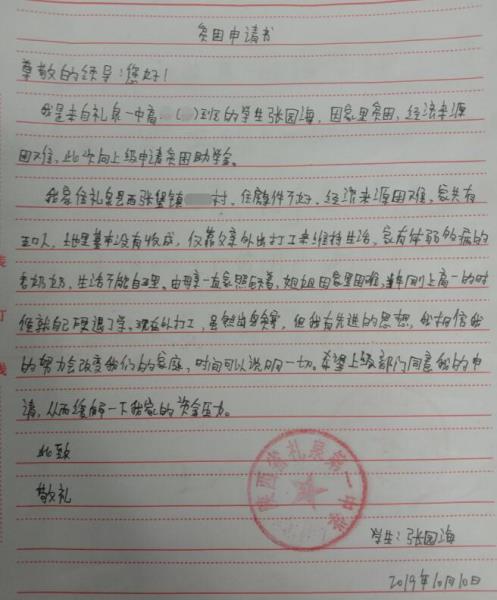 贫困申请书
尊敬的领导:您好!
我是来自礼泉一中高 ( )班的学生张园海,因家里贫困,经济来源
困难,此次向上级申请贫困助学金。
我家住礼泉县西张堡镇 村,住的条件不好,经济来源困难,家共有
五口人,地里基本没有收成,仅靠父亲外出打工来维持生活,家有体弱多病的
老奶奶,生活不能自理,由母亲一直在家照顾着,姐姐因家里困难,当年刚上高一的时
候就自己退了学,现在外打工,虽然出身贫寒,但我有先进的思想,我相信我
的努力会改变我们的家庭,时间可以说明一切。希望上级部门同意我的申
请,从而缓解一下我家的资金压力。
此致
敬礼
陕西省礼泉第一中学
学生:张园海
2019年10月10日
装
订
线